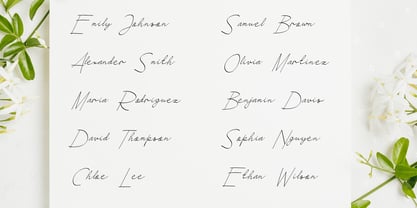 Emily Johnson
Alexander Smith
Maria Rodriguez
David Thompson
Chloe Lee
Samuel Brown
Olivia Martinez
Benjamin Davis
Sophia Nguyen
Ethan Wilson